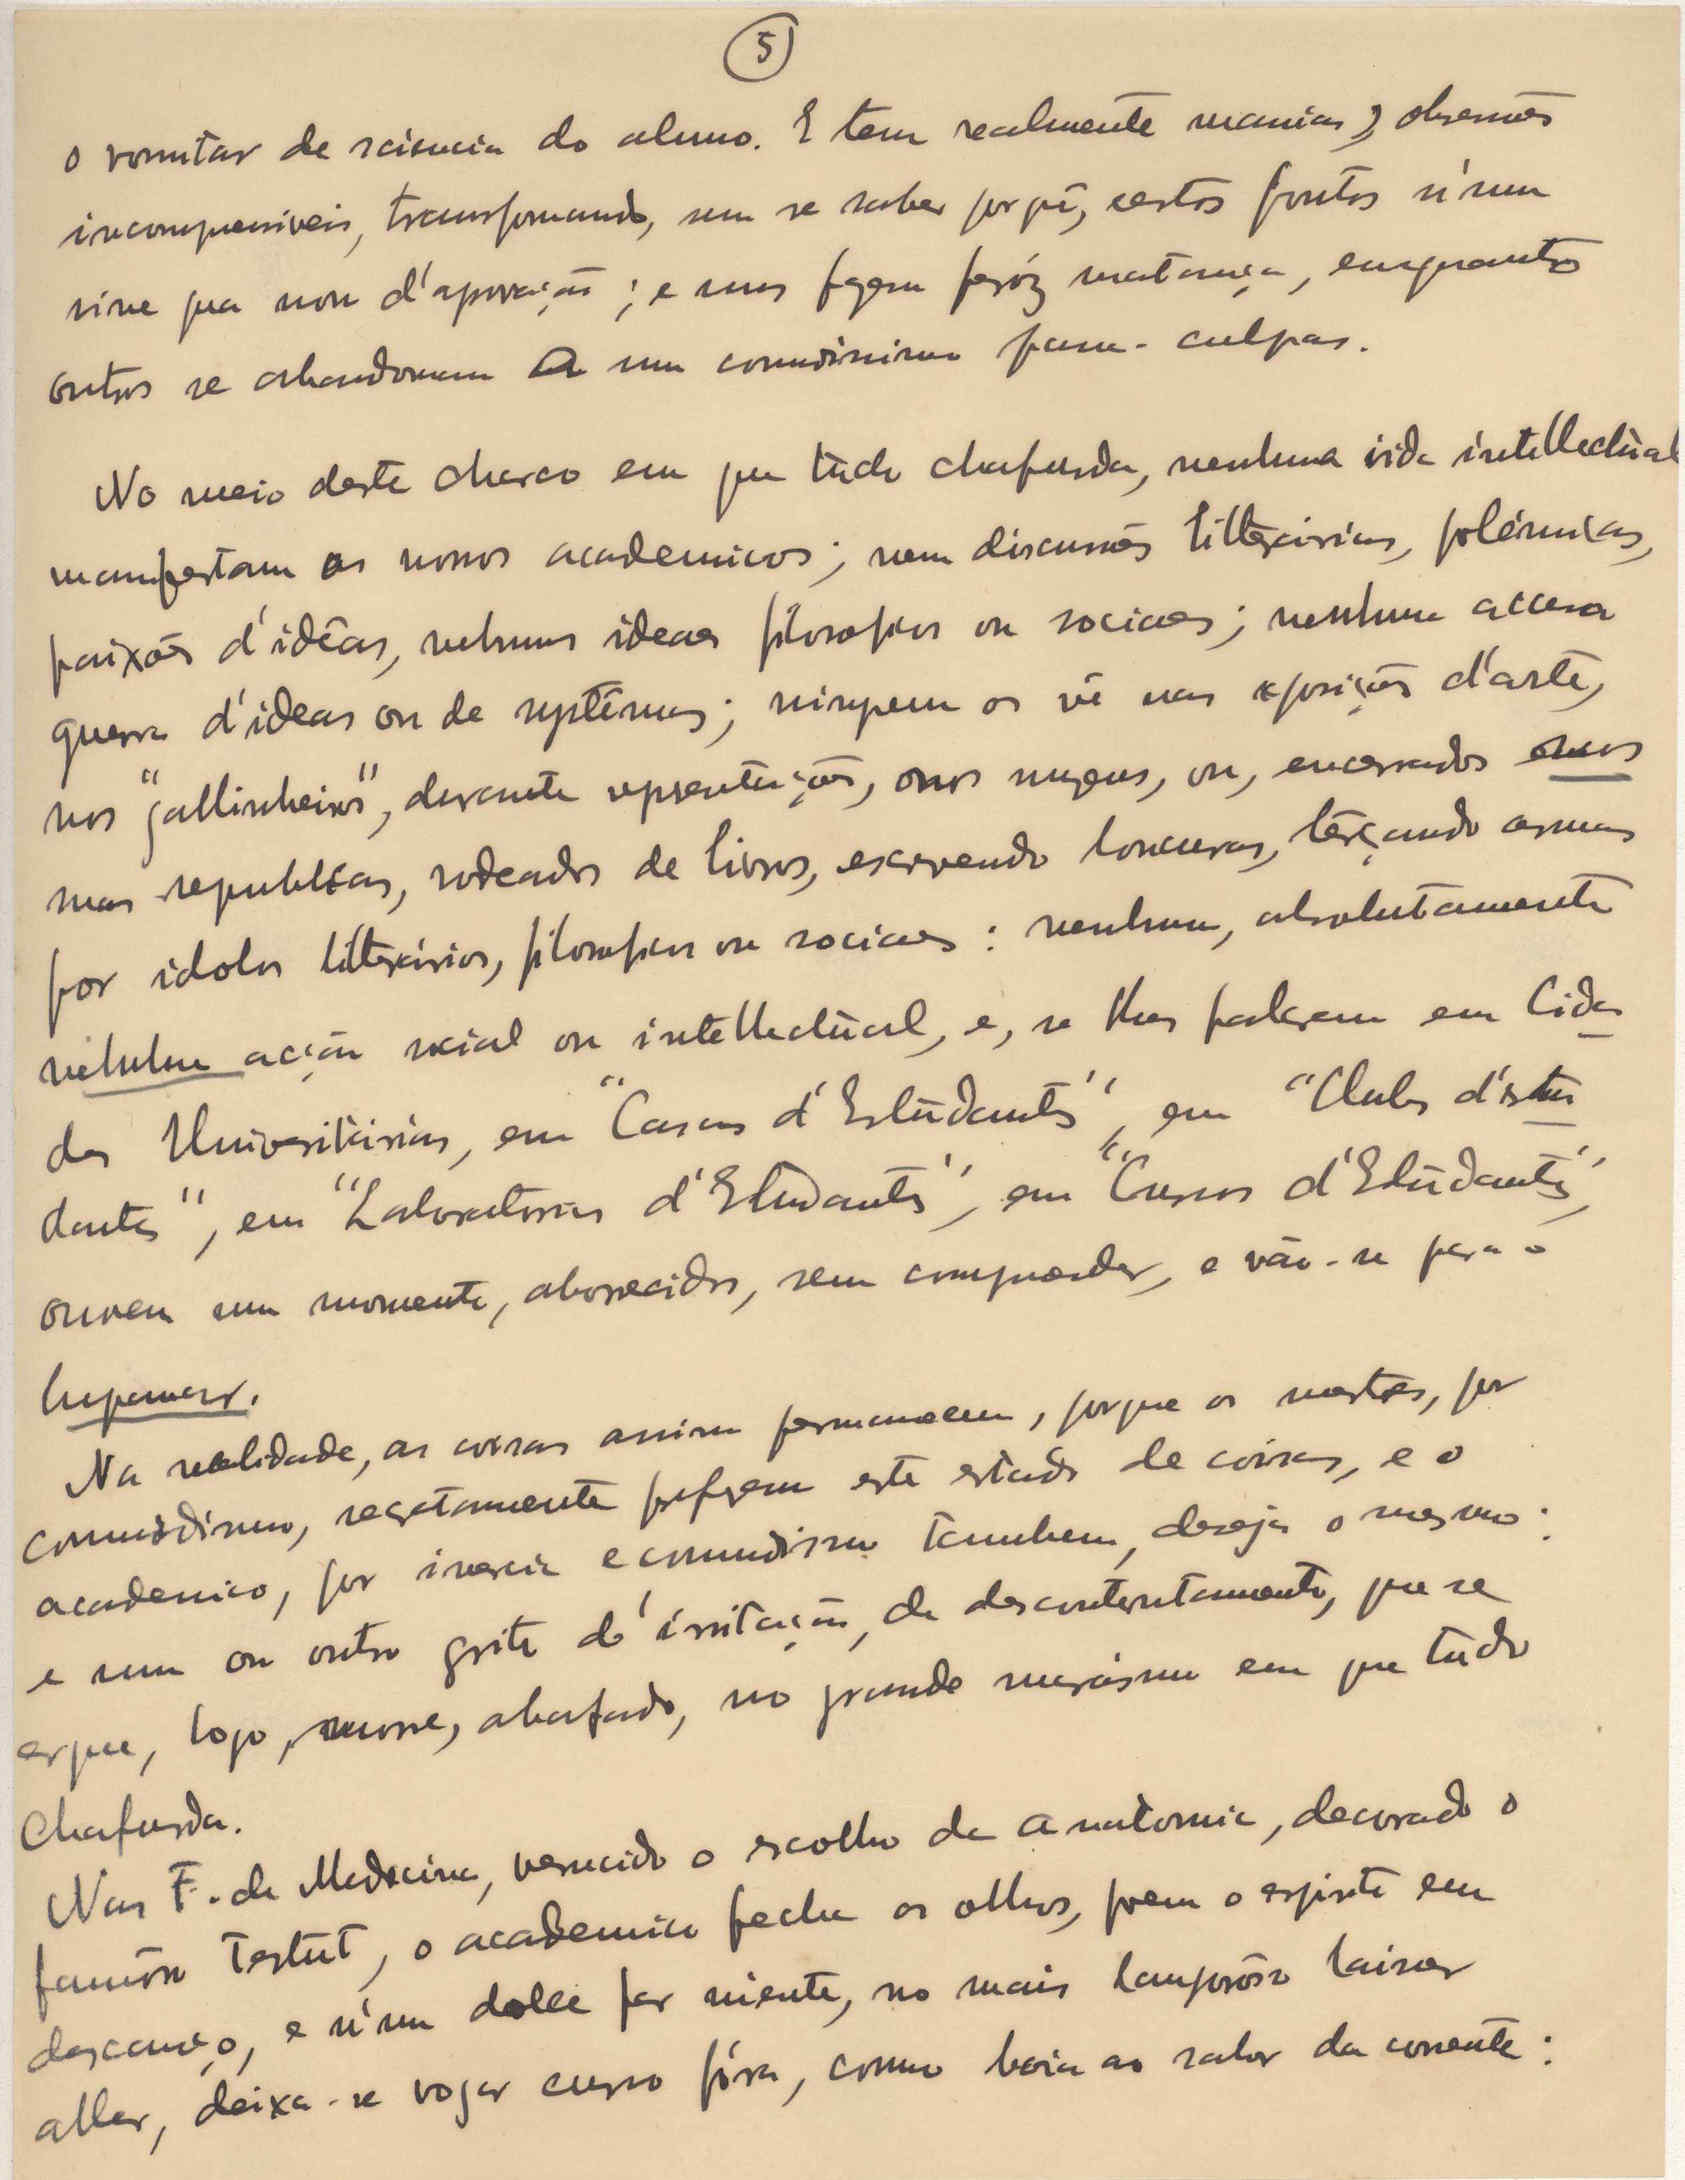 5
o vomitar de sciencia do alumo. E tem realmente manias, obsessões
incomprensiveis, transformando, sem se saber porquê, certos pontos n'um
sine qua non d'aprovação; e uns fazem feróz matança, emquanto
outros se abandonam a um comodismo pam-culpas.
No meio deste charco em que tudo chafurda, nenhuma vida intellectual
manifestam os nossos academicos; nem discussões litterárias, polémicas,
paixões d'idêas, nehnuns ideaes filosoficos ou sociaes; nenhuma accesa
guerra d'ideas ou de systêmas; ninguem os vê nas exposições d'arte,
nos "gallinheiros", durante representações, ou nos museus, ou, encerrados
nas republicas, rodeados de livros, escrevendo loucuras, têrçando armas
por idolos litterários, filosoficos ou sociaes: nenhuma, absolutamente
nehuma acção social ou intellectual, e, se lhes falarem em Cida
des Universitárias, em "Casas d'Estudantes", em "Clubs d'estu
dantes", em "Laboratorios d'Estudantes", em "Cursos d'Estudantes",
ouvem um momento, aborrecidos, sem comprender, e vão-se para o
lupanar.
Na realidade, as coisas assim permanecem, porque os mestres, por
comodismo, secretamente preferem este estado de coisas, e o
academico, por inercia e comodismo tambem, deseja o mesmo:
e um ou outro grito d'irritação, de descontentamento, que se
ergue, logo, morre, abafado, no grande marásmo em que tudo
chafurda.
Nas F. de Medicina, vencido o escolho da Anatomia, decorado o
famôso Testut, o academico fecha os olhos, poem o espirito em
descanço, e n'um dolce far niente, no mais langorôso laisser
aller, deixa-se vogar curso fóra, como boia ao sabor da corrente: